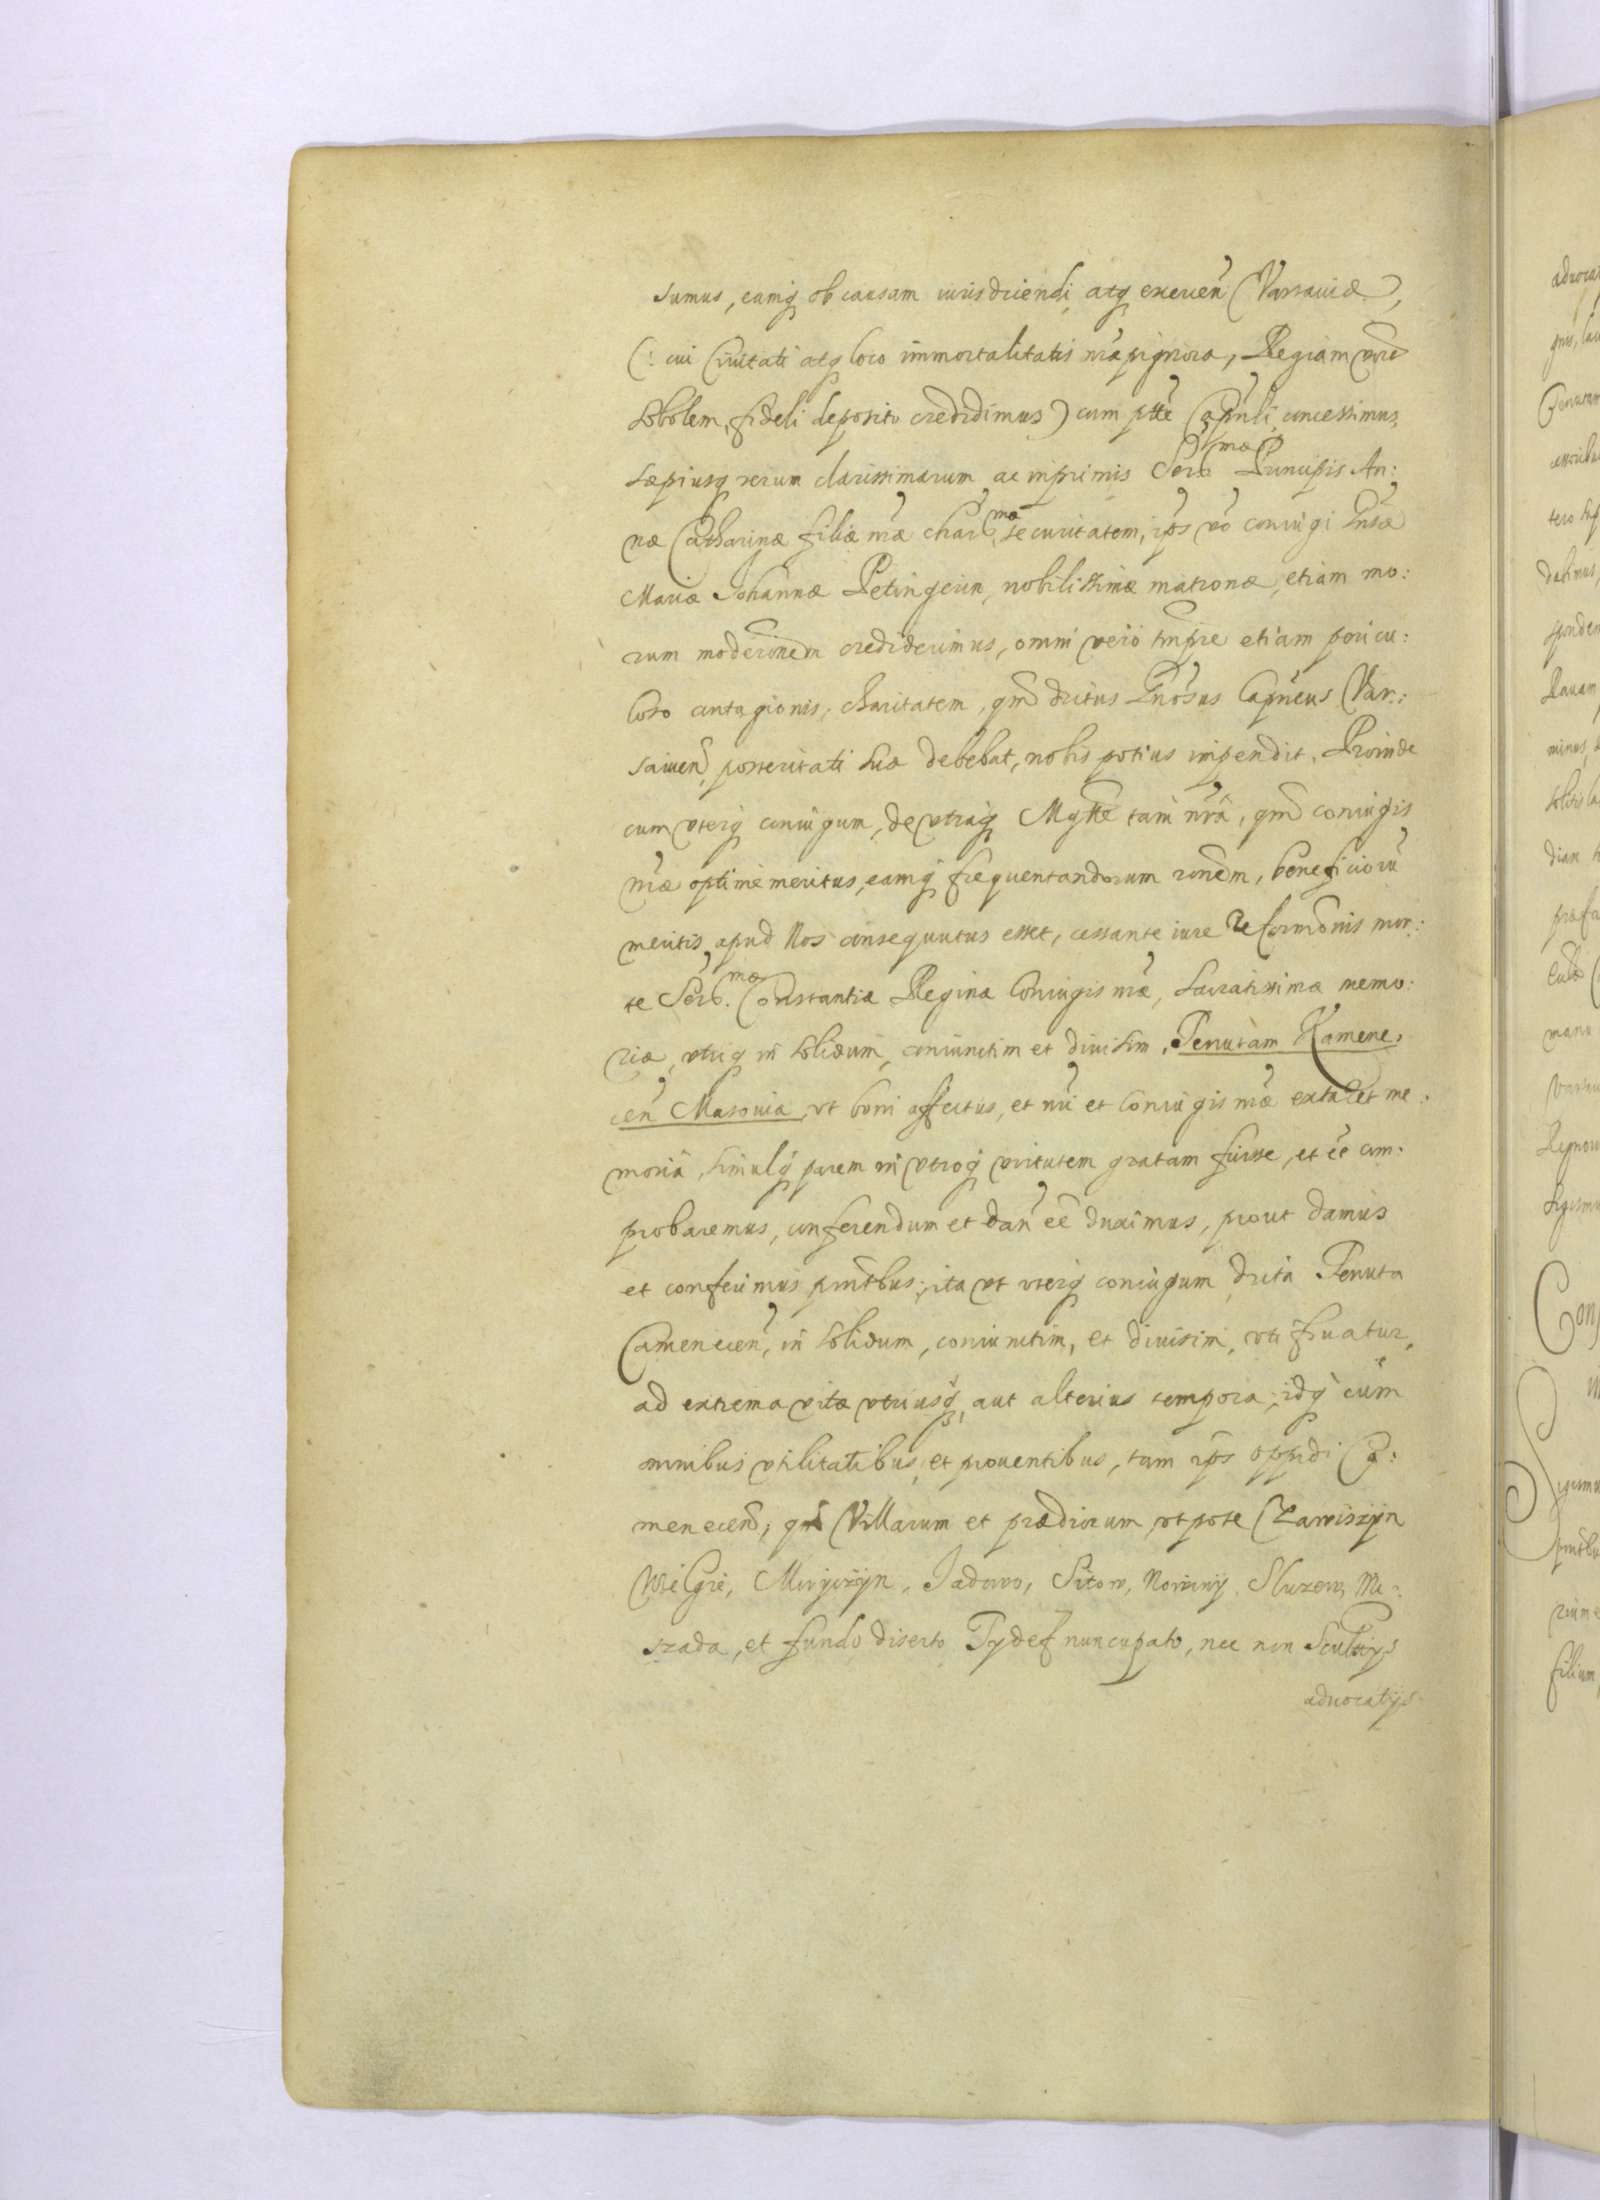 sumus, eamq ob causam iurisdiciendi atq exercen Varsauiæ,
(: cui Ciuitati atq loco immortalitatis nræ pignora, Regiam
sobolem, fideli deposito credidimus) cum ptte Capnli concessimus,
sæpiusq rerum clarissimarum ac inprimis Ser: mæ Principis An:
næ Catharinæ filiæ nræ char: mæ securitatem, ips vo coniugi
Mariæ Johannæ Petingerin, nobilissimæ matronæ, etiam mo:
rum moderonem crediderimus, omni vero tmpre etiam pericu:
loso contagionis, charitatem, qm dictus Gnosus Capneus Var:
sauien, posteritati suæ debebat, nobis potius impendit. Proinde
cum vterq coniugum, de vtraq Mytte tam nra, qm coniugis
nræ optime meritus, eamq frequentandorum ronem, beneficioru
meritis, apud Nos consequutus esset, cessante iure reformonis mor:
te Ser: mæ Constantiæ Reginæ Coniugis nræ, sacratissimæ memo:
riæ, vtriq in solidum, coniunctim et diuisim, Tenutam Kamene,
cen Masouia, vt boni affectus, et nri et Coniugis nræ extaret me:
moria, simulq parem in vtroq virtutem gratam fuisse, et ee com:
probaremus, conferendum et dan ee duximus, prout damus
et conferimus pntbus; ita vt vterq coniugum dicta Tenuta
Camenecen, in solidum, coniunctim, et diuisim, vti fruatur,
ad extrema vitæ vtriusq, aut alterius tempora; idq cum
omnibus vtilitatibus, et prouentibus, tam ips oppidi Ca:
menecen, qm Villarum et prædiorum, vtpote Zawiszyn
Wielgie, Jadowo, Sitow, Nowiny
szada, et fundo deserto nuncupato, nec non Scultys
aduocatijs